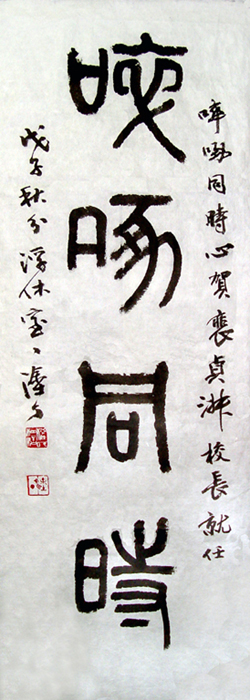 啐啄同時心賀裵貞淋校長就任
啐啄同時
戊子秋分浮休室